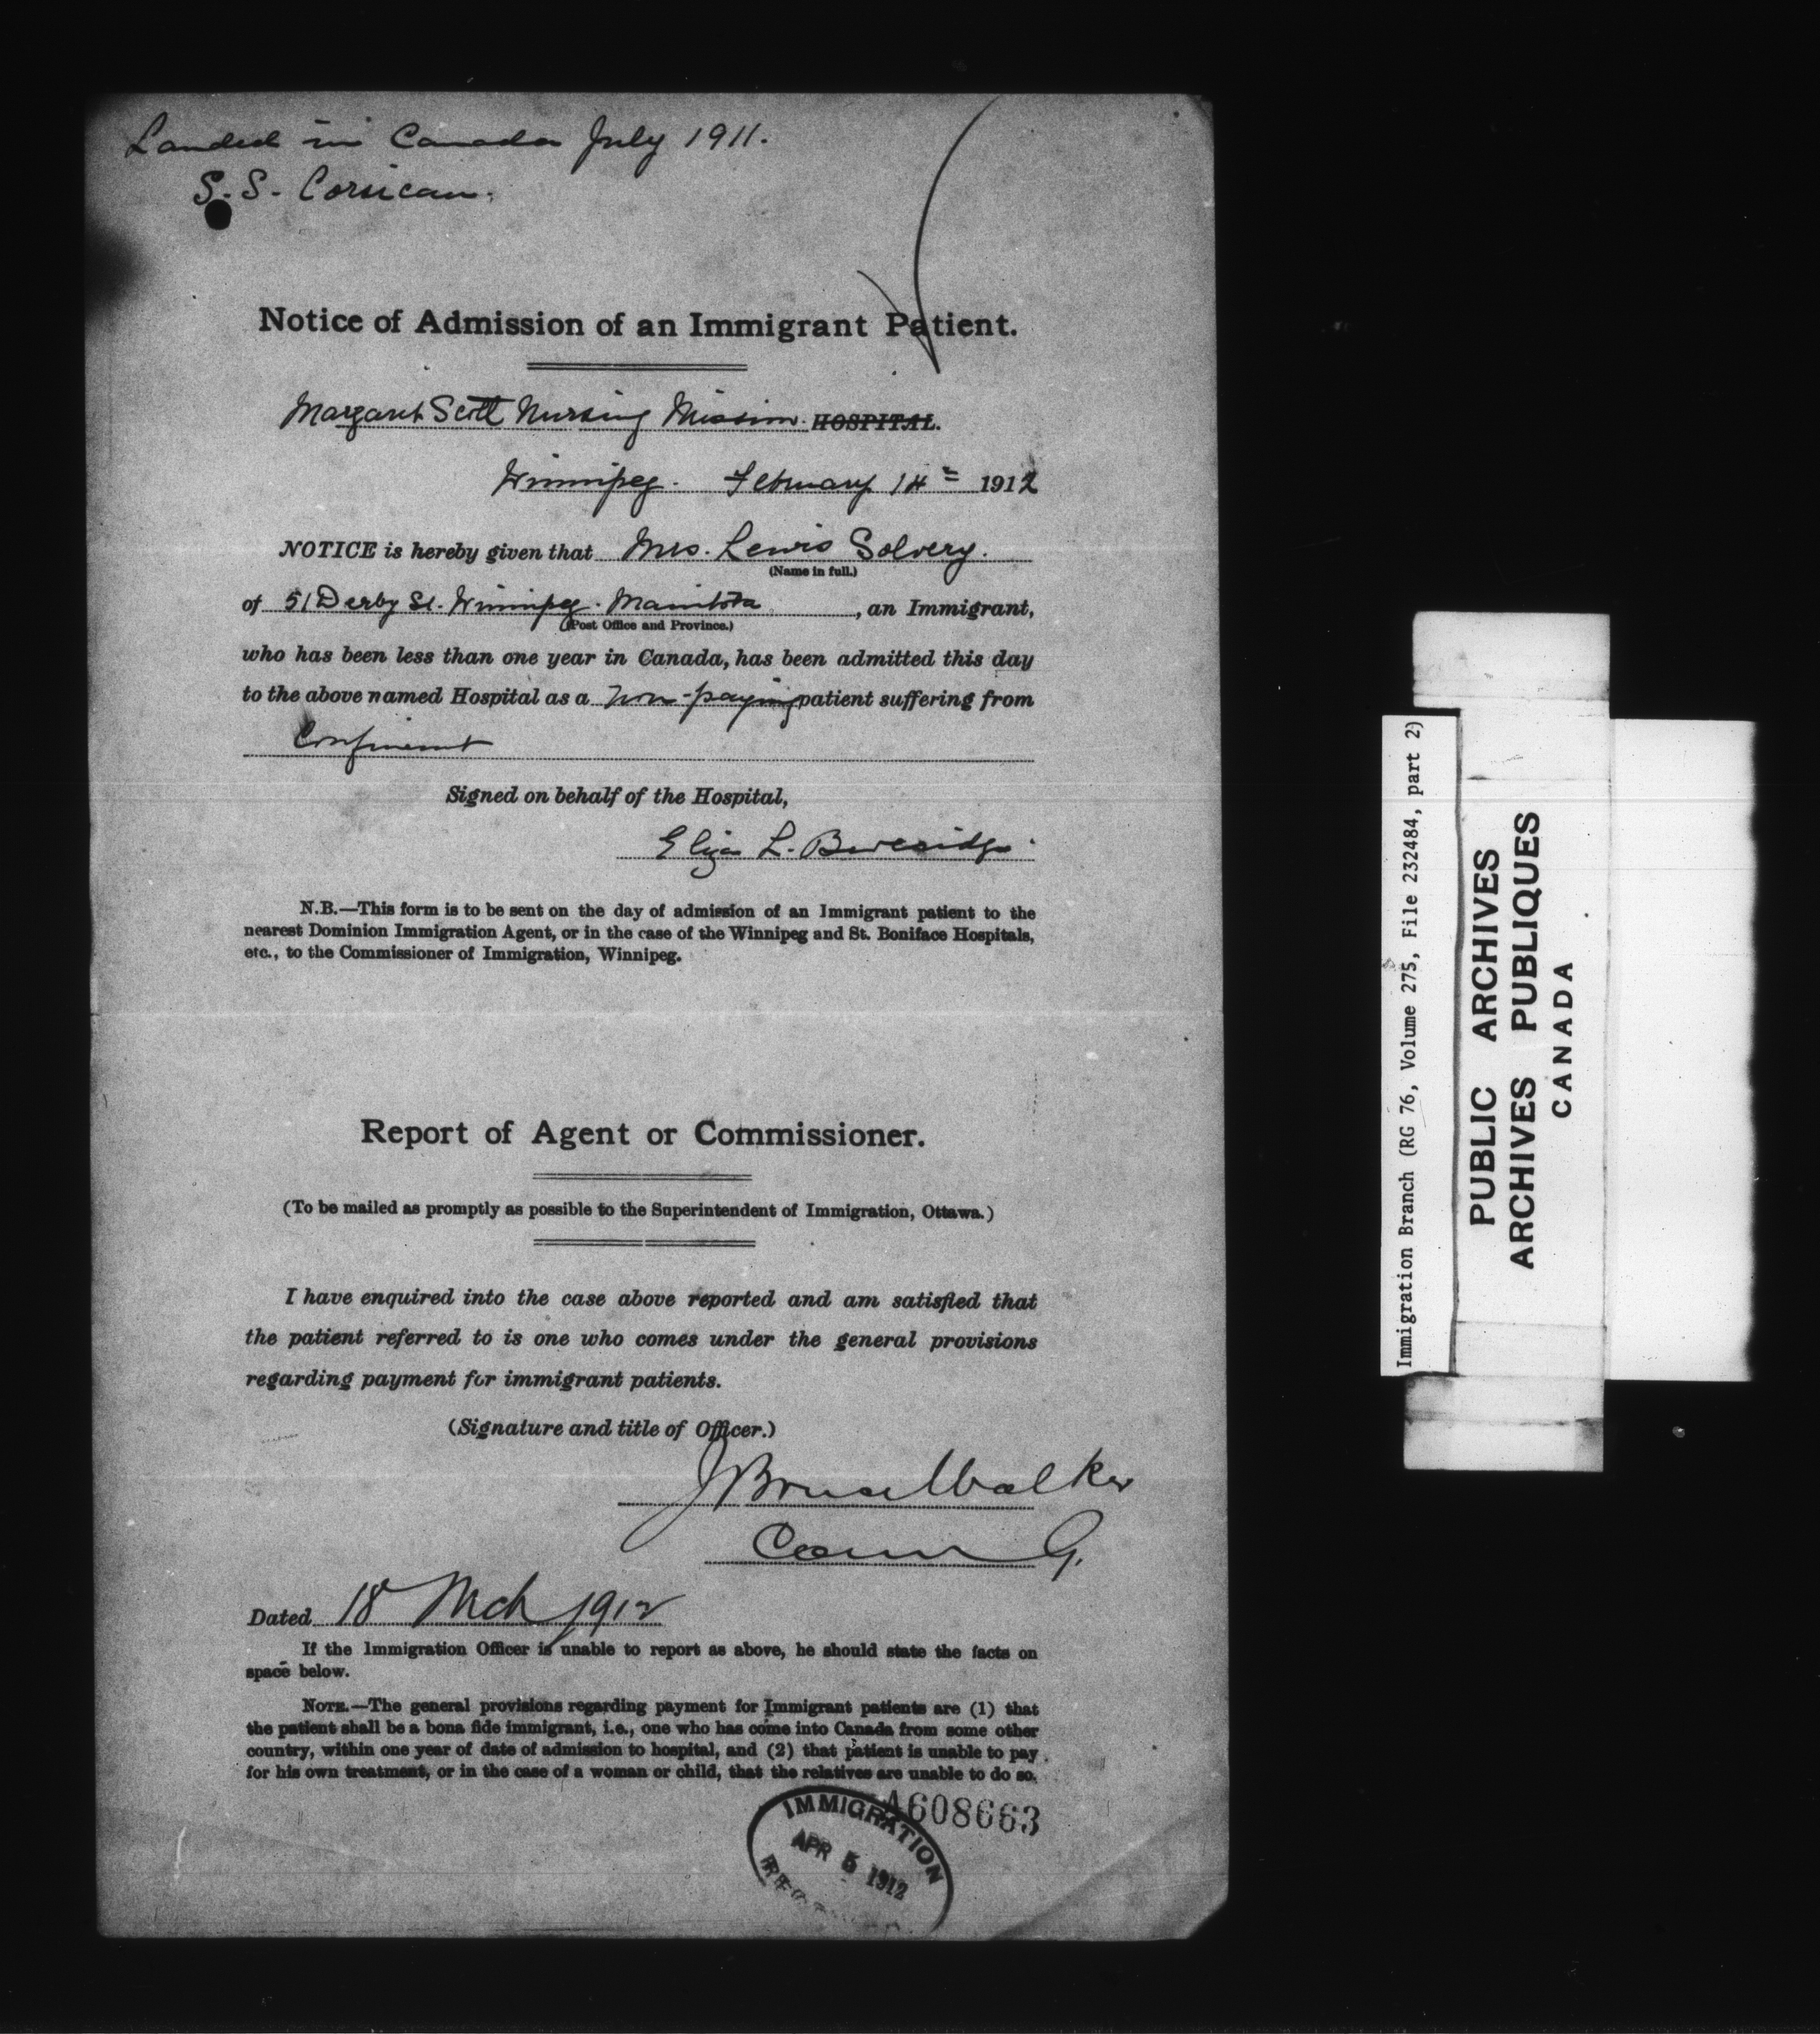 Landed in Canada July 1911.
S.S. Corsican.
Notice of Admission of an Immigrant Patient.
Margaret Scott Nursing Mission. HOSPITAL.
Winnipeg. February 14th 1912
NOTICE is hereby given that Mrs. Lewis Solvery.
(Name in full.)
of 51 Derby St. Winnipeg. Manitoba, an Immigrant,
(Post Office and Province.)
who has been less than one year in Canada, has been admitted this day
to the above named Hospital as a non-paying patient suffering from
Confinement
Signed on behalf of the Hospital,
Eliza L. Beveridge.
N.B.—This form is to be sent on the day of admission of an Immigrant patient to the
nearest Dominion Immigration Agent, or in the case of the Winnipeg and St. Boniface Hospitals,
etc., to the Commissioner of Immigration, Winnipeg.
Report of Agent or Commissioner.
(To be mailed as promptly as possible to the Superintendent of Immigration, Ottawa.)
I have enquired into the case above reported and am satisfied that
the patient referred to is one who comes under the general provisions
regarding payment for immigrant patients.
(Signature and title of Officer.)
J Bruce Walker
Comm G.
Dated 18 Mch 1912
If the Immigration Officer is unable to report as above, he should state the facts on
space below.
NOTE.—The general provisions regarding payment for Immigrant patients are (1) that
the patient shall be a bona fide immigrant, i.e., one who has come into Canada from some other
country, within one year of date of admission to hospital, and (2) that patient is unable to pay
for his own treatment, or in the case of a woman or child, that the relatives are unable to do so.
A608663
IMMIGRATION
APR 5 1912
Immigration Branch (RG 76, Volume 275, File 232484, part 2)
PUBLIC ARCHIVES
ARCHIVES PUBLIQUES
CANADA